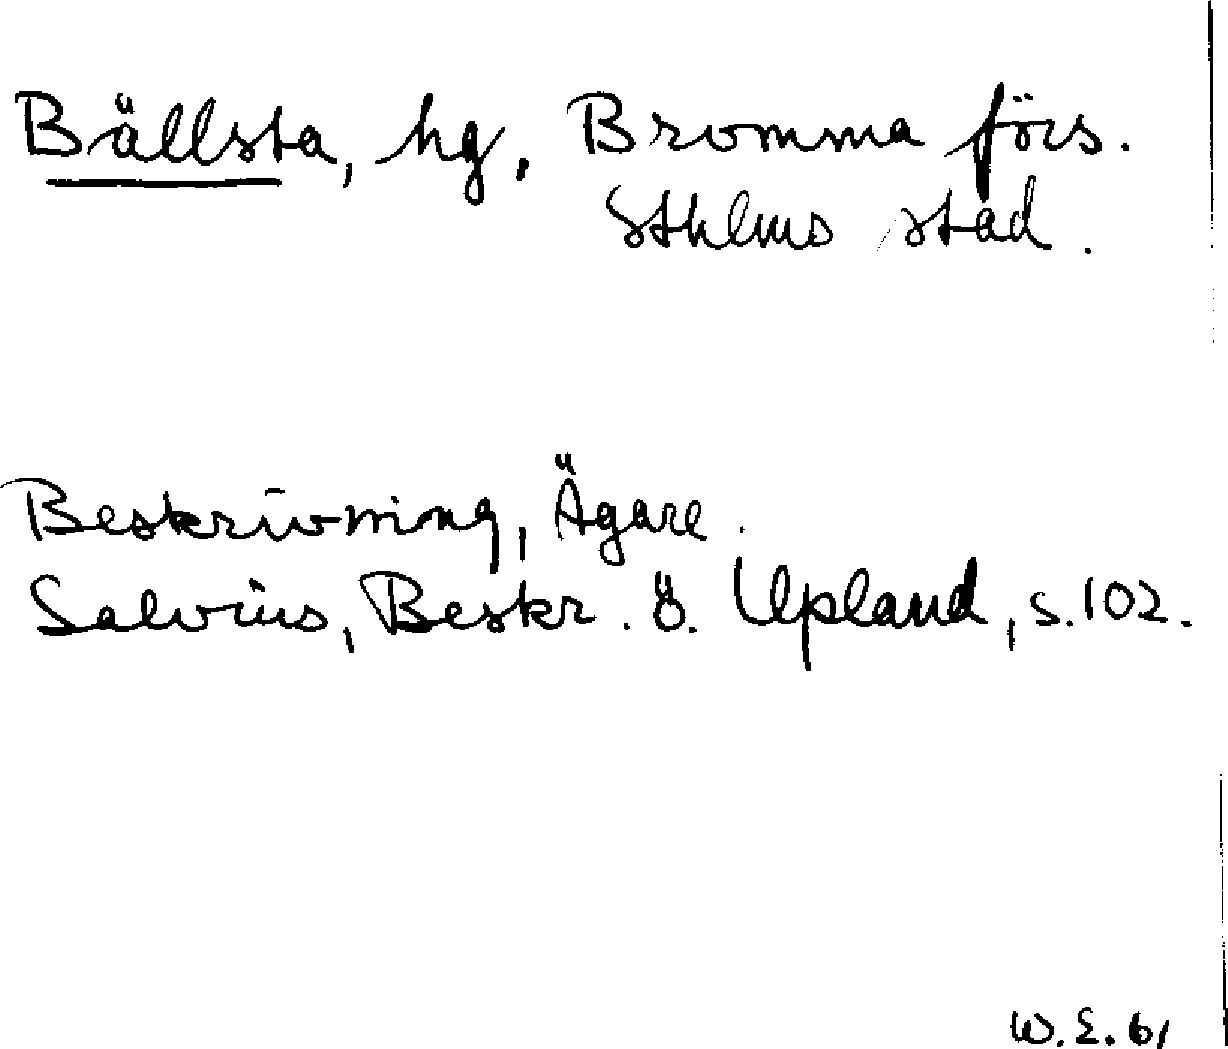 Bällsta, hg, Bromma förs.
Sthlms stad.
Beskrivning, Ägare.
Salvius, Beskr. ö. Upland, s. 102.
W. E. 61